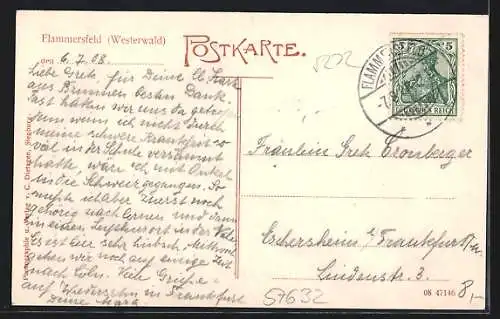 Flammersfeld (Westerwald)
POSTKARTE.
den 6.7.08.
Liebe Gretl, für Deine lb. Karte
aus Brunnen besten Dank.
Fast hätten wir uns da getroffen
wenn ich nicht durch
meine schwere Krankheit so
viel in der Schule versäumt
hätte, wäre ich mit Onkel
in die Schweiz gegangen. So
mußte ich aber zuerst noch
gehörig nach lernen und dann
in einen Luftkurort in der Nähe.
Es ist hier sehr hübsch. Mittwoch
gehen wir noch auf einige Zeit
nach Cöln. Viele Grüße
auf Wiedersehn in Frankfurt
Deine
522
FLAMMERSFELD
5
DEUTSCHES REICH
Fräulein Gretl Cronberger
Eschersheim b/ Frankfurt a/m.
Lindenstr. 3.
57632
08 47146
8,-
Verlag v. C. Dietzgen, Siegburg